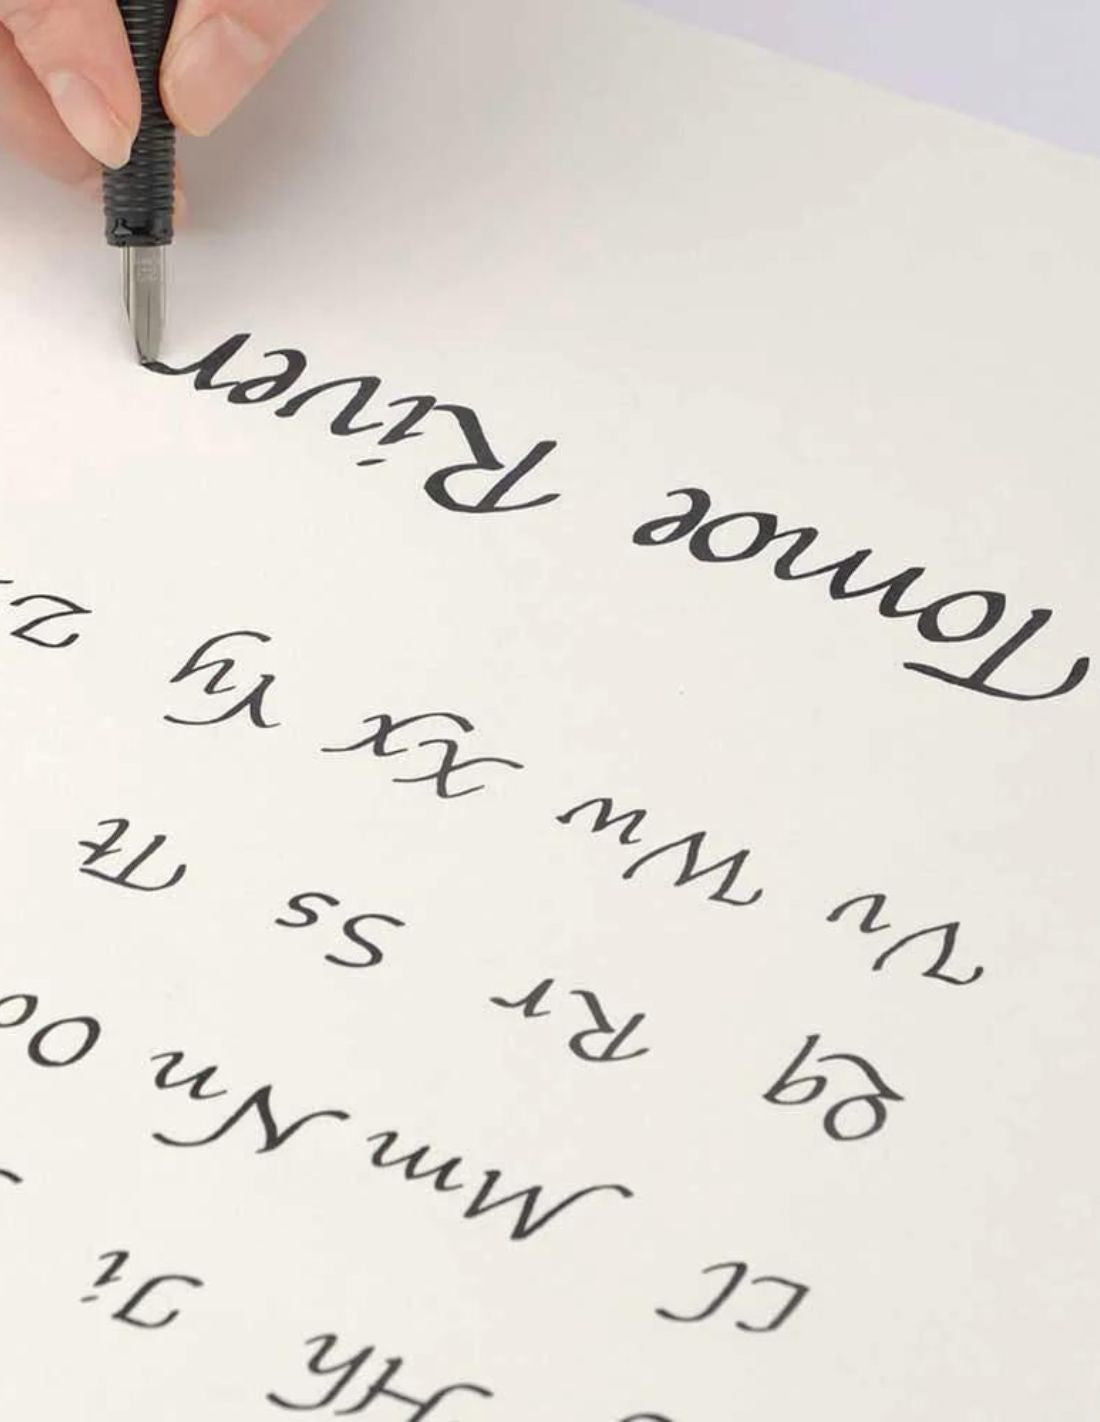 Hh Ii
Ll Mm Nn Oo
Qq Rr Ss Tt
Vv Ww Xx Yy Z
Tomoe River